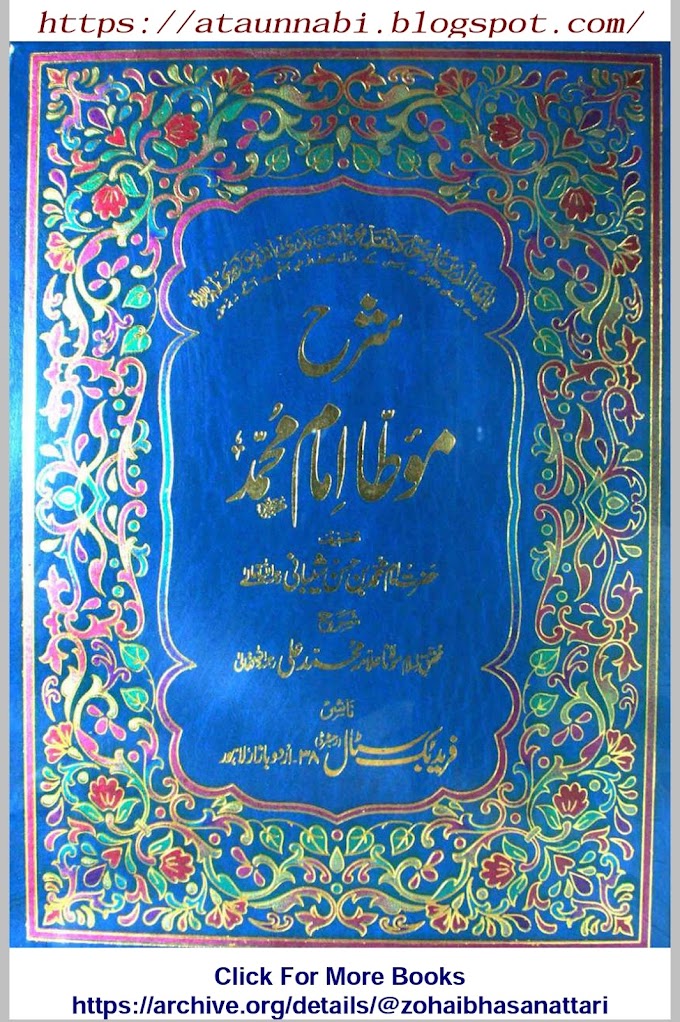 https://ataunnabi.blogspot.com/
شرح
مؤطّا اِمام مُحمّدؒ
تصنیف
حضرت امام محمد بن حسن شیبانی
شرح
محقق اسلام مولانا علامہ محمد علی
ناشر
فرید بک سٹال (رجسٹرڈ) ۳۸۔اُردو بازار لاہور
Click For More Books
https://archive.org/details/@zohaibhasanattari